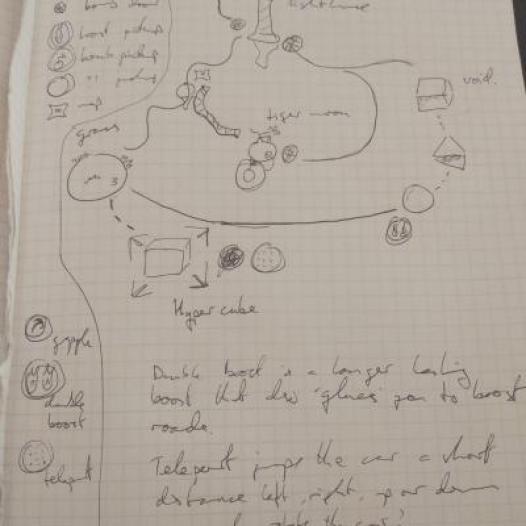 boost pickup
bomb pickup
" " pickup
map
lighthouse
void.
tiger moon
grass
3
Hypercube
grapple
double
boost
teleport
Double boost is a longer lasting
boost that also 'glues' you to boost
roads.
Teleport jumps the car a short
distance left, right, up or down